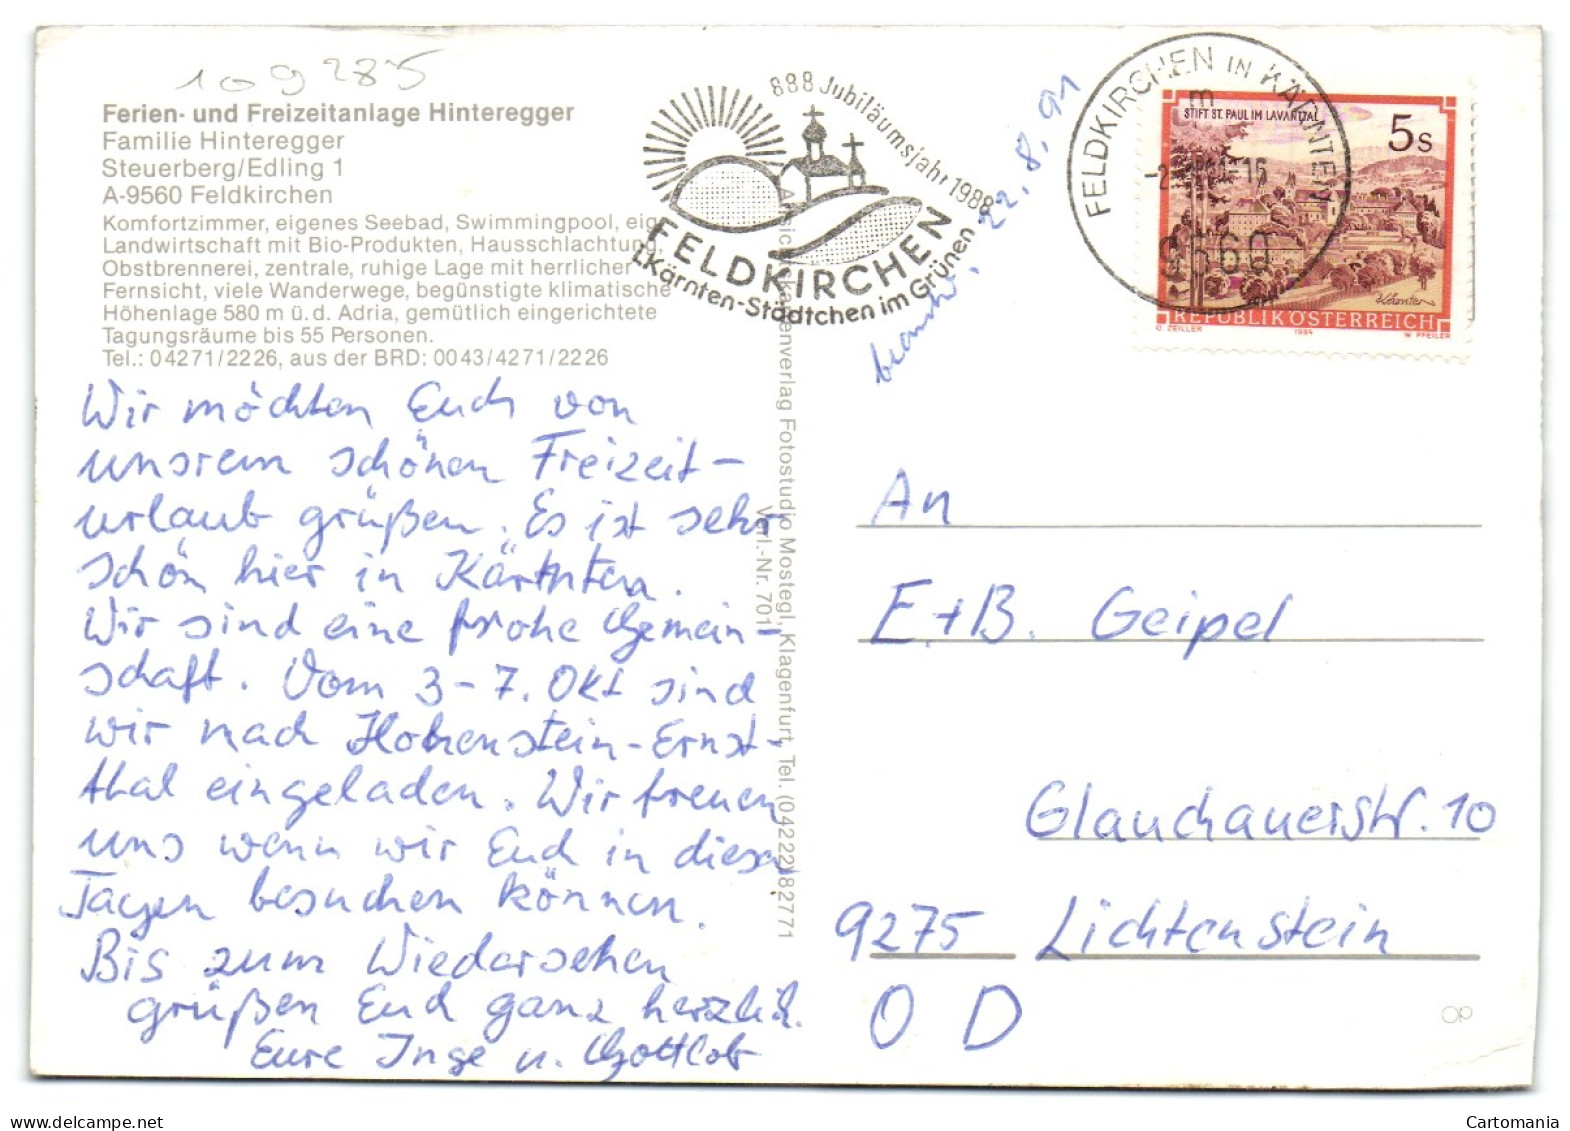 109285
Ferien- und Freizeitanlage Hinteregger
Familie Hinteregger
Steuerberg/Edling 1
A-9560 Feldkirchen
Komfortzimmer, eigenes Seebad, Swimmingpool, eig.
Landwirtschaft mit Bio-Produkten, Hausschlachtung,
Obstbrennerei, zentrale, ruhige Lage mit herrlicher
Fernsicht, viele Wanderwege, begünstigte klimatische
Höhenlage 580 m ü.d. Adria, gemütlich eingerichtete
Tagungsräume bis 55 Personen.
Tel.: 04271/2226, aus der BRD: 0043/4271/2226
Wir möchten Euch von
unserem schönen Freizeit-
urlaub grüßen. Es ist sehr
schön hier in Kärnten.
Wir sind eine frohe Gemein-
schaft. Vom 3-7. Okt sind
wir nach Hohenstein-Ernst-
thal eingeladen. Wir freuen
uns wenn wir Euch in diesen
Tagen besuchen können.
Bis zum Wiedersehen
grüßen Euch ganz herzlich.
Eure Inge u. Gottlob
Ansichtskartenverlag Fotostudio Mostegl, Klagenfurt, Tel. (04222) 82771
Verl.-Nr. 701
888 Jubiläumsjahr 1988
FELDKIRCHEN
i.Kärnten-Städtchen im Grünen
22.8.91
FELDKIRCHEN IN KÄRNTEN
m
9560
STIFT ST. PAUL IM LAVANTTAL
5 S
REPUBLIK ÖSTERREICH
O. ZEILLER 1984 W. PFEILER
An
E.+B. Geipel
Glauchauerstr. 10
9275 Lichtenstein
O D
OP
www.delcampe.net
Cartomania